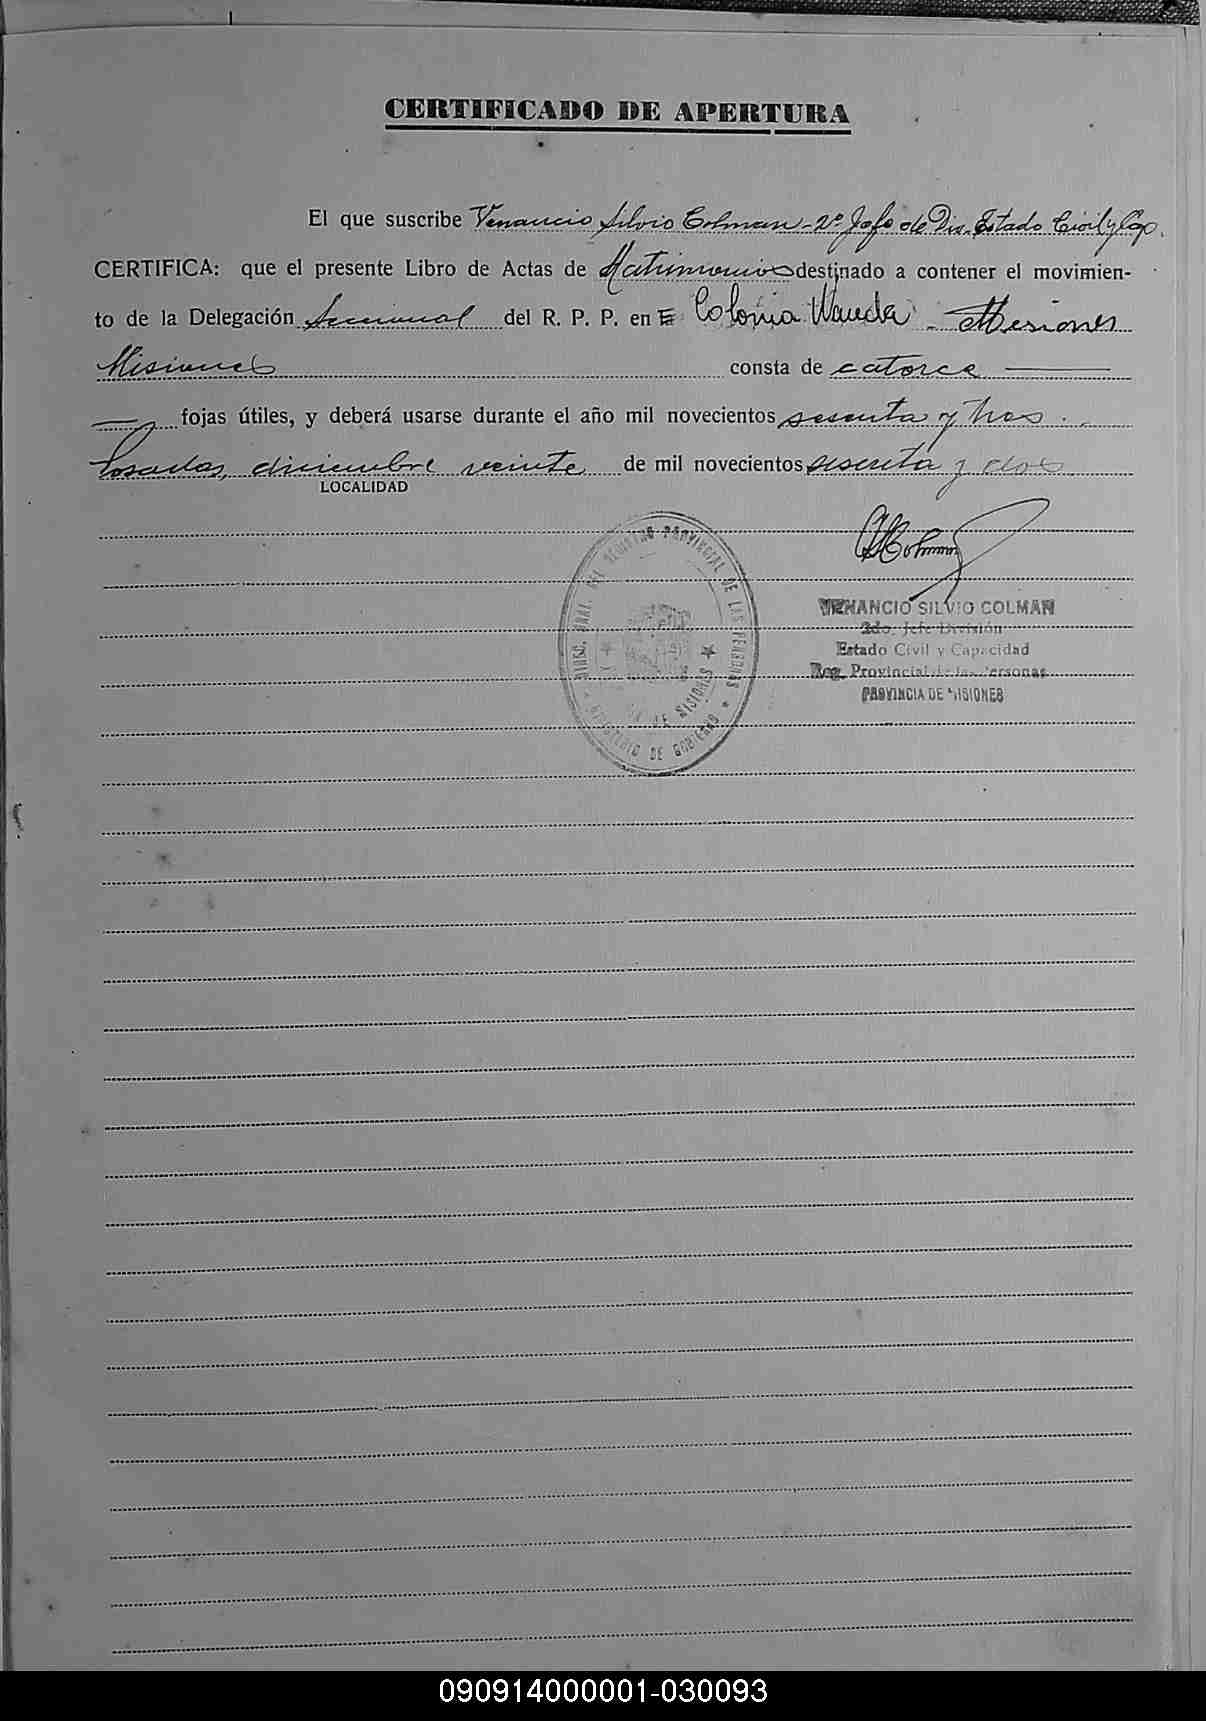 CERTIFICADO DE APERTURA
El que suscribe Venancio Silvio Colman - 2º Jefe de Div. Estado Civil y Cap.
CERTIFICA: que el presente Libro de Actas de Matrimonios destinado a contener el movimien-
to de la Delegación Seccional del R. P. P. en Colonia Wanda - Misiones
Misiones consta de catorce
fojas útiles, y deberá usarse durante el año mil novecientos sesenta y tres.
Posadas, diciembre veinte de mil novecientos sesenta y dos
LOCALIDAD
VENANCIO SILVIO COLMAN
2do. Jefe División
Estado Civil y Capacidad
Reg. Provincial de las Personas
PROVINCIA DE MISIONES
REGISTRO PROVINCIAL DE LAS PERSONAS
DE MISIONES
MINISTERIO DE GOBIERNO
090914000001-030093